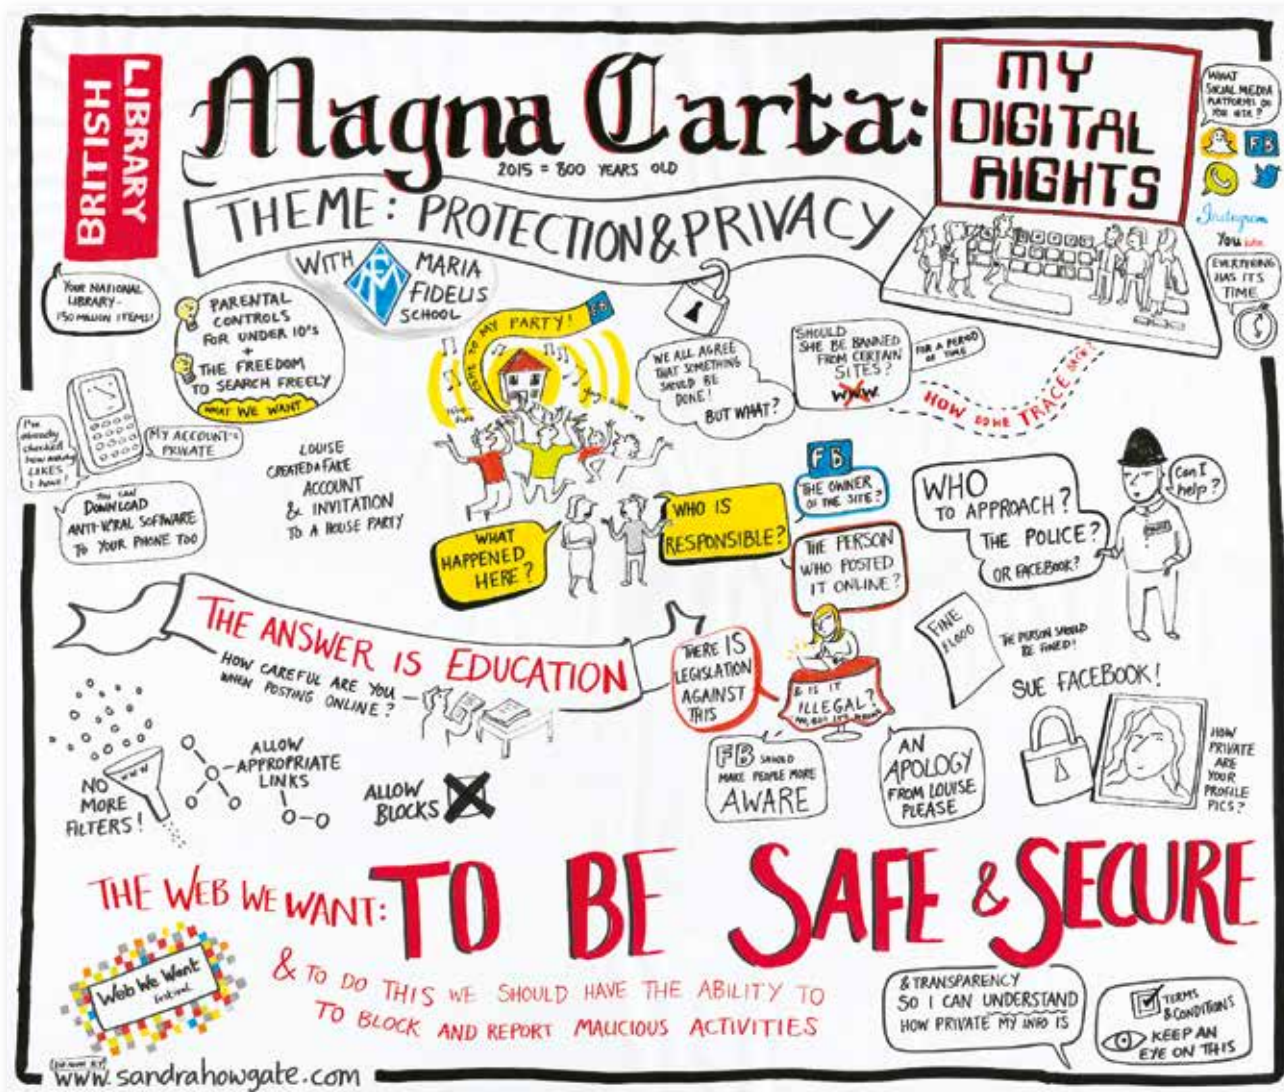 BRITISH
LIBRARY
Magna Carta:
2015 = 800 YEARS OLD
MY
DIGITAL
RIGHTS
WHAT
SOCIAL MEDIA
PLATFORMS DO
YOU USE?
FB
Instagram
You
EVERYTHING
HAS ITS
TIME
THEME: PROTECTION & PRIVACY
WITH
MARIA
FIDELIS
SCHOOL
YOUR NATIONAL
LIBRARY-
150 MILLION ITEMS!
PARENTAL
CONTROLS
FOR UNDER 10'S
+
THE FREEDOM
TO SEARCH FREELY
WHAT WE WANT
I'm
already
checked
how many
LIKES
I have!
MY ACCOUNT'S
PRIVATE
YOU CAN
DOWNLOAD
ANTI-VIRAL SOFTWARE
TO YOUR PHONE TOO
LOUISE
CREATED A FAKE
ACCOUNT
& INVITATION
TO A HOUSE PARTY
COME TO MY PARTY!
FB
WE ALL AGREE
THAT SOMETHING
SHOULD BE
DONE!
BUT WHAT?
SHOULD
SHE BE BANNED
FROM CERTAIN
SITES?
WWW
FOR A PERIOD
OF TIME
HOW DO WE TRACE BACK?
WHAT
HAPPENED
HERE?
WHO IS
RESPONSIBLE?
FB
THE OWNER
OF THE SITE?
THE PERSON
WHO POSTED
IT ONLINE?
WHO
TO APPROACH?
THE POLICE?
OR FACEBOOK?
Can I
help?
THE ANSWER IS EDUCATION
HOW CAREFUL ARE YOU
WHEN POSTING ONLINE?
THERE IS
LEGISLATION
AGAINST
THIS
& IS IT
ILLEGAL?
FINE
£1,000
THE PERSON SHOULD
BE FINED!
SUE FACEBOOK!
NO
MORE
FILTERS!
WWW
ALLOW
APPROPRIATE
LINKS
ALLOW
BLOCKS
FB SHOULD
MAKE PEOPLE MORE
AWARE
AN
APOLOGY
FROM LOUISE
PLEASE
HOW
PRIVATE
ARE
YOUR
PROFILE
PICS?
THE WEB WE WANT: TO BE SAFE & SECURE
Web We Want
Festival
& TO DO THIS WE SHOULD HAVE THE ABILITY TO
TO BLOCK AND REPORT MALICIOUS ACTIVITIES
& TRANSPARENCY
SO I CAN UNDERSTAND
HOW PRIVATE MY INFO IS
TERMS
& CONDITIONS
KEEP AN
EYE ON THIS
DRAWN BY
www.sandrahowgate.com